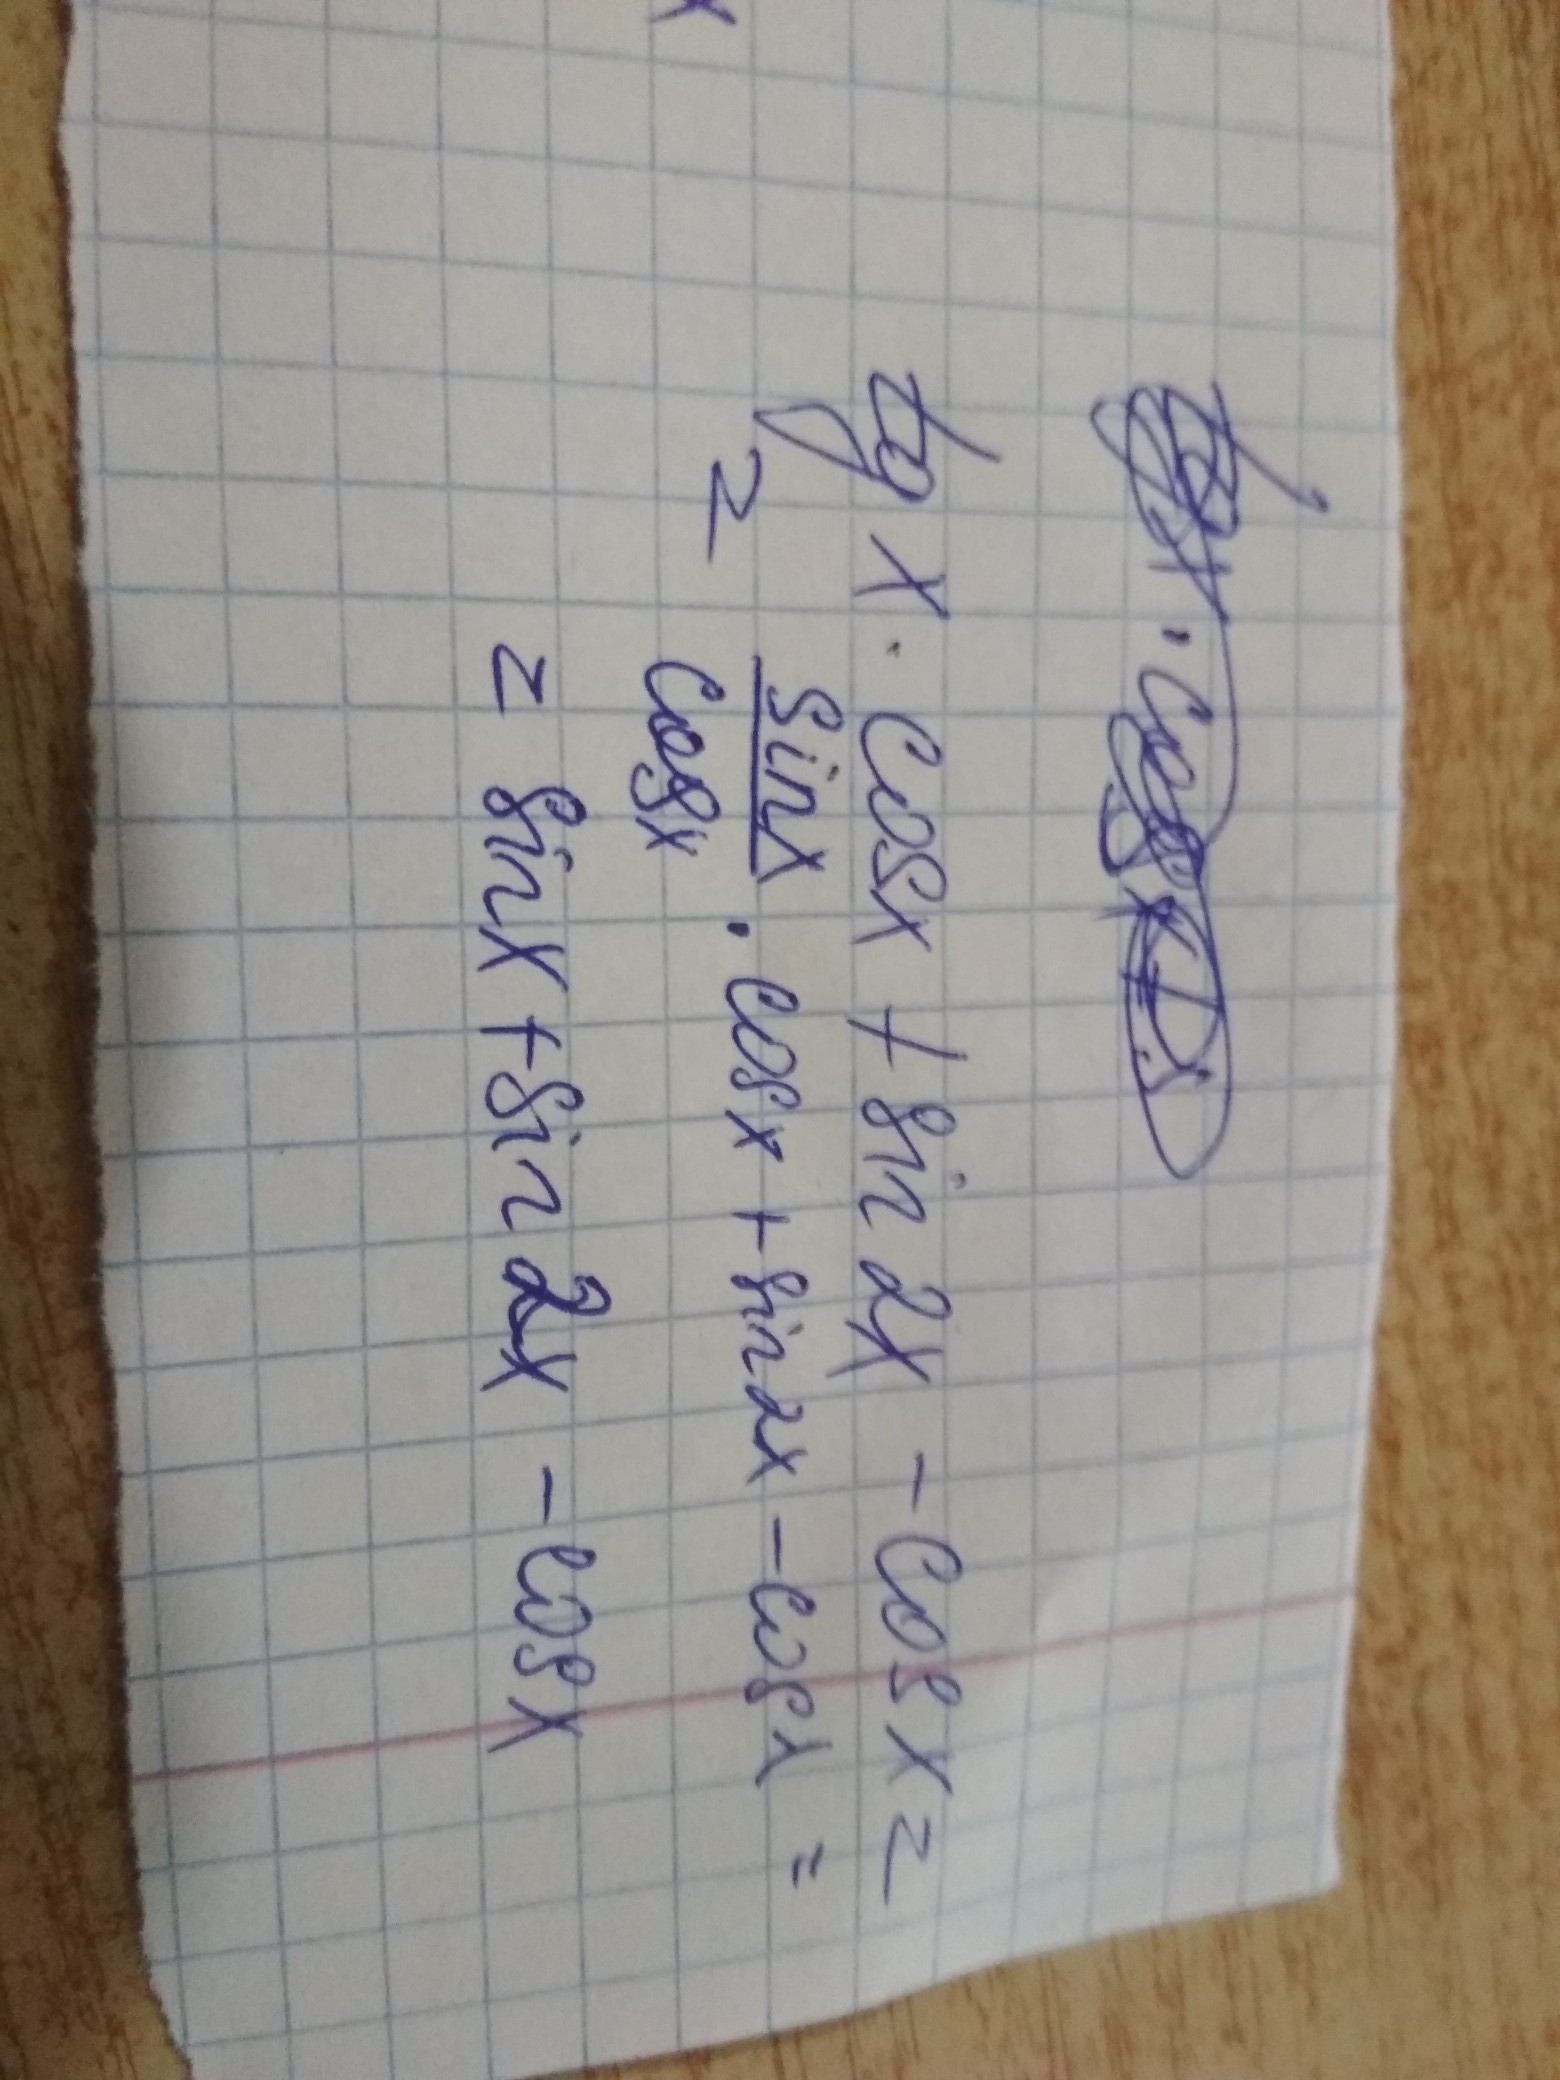 tg x · cosx + sin 2x - cos x =
= sinx/cosx · cosx + sin2x - cosx =
= sinx + sin 2x - cosx